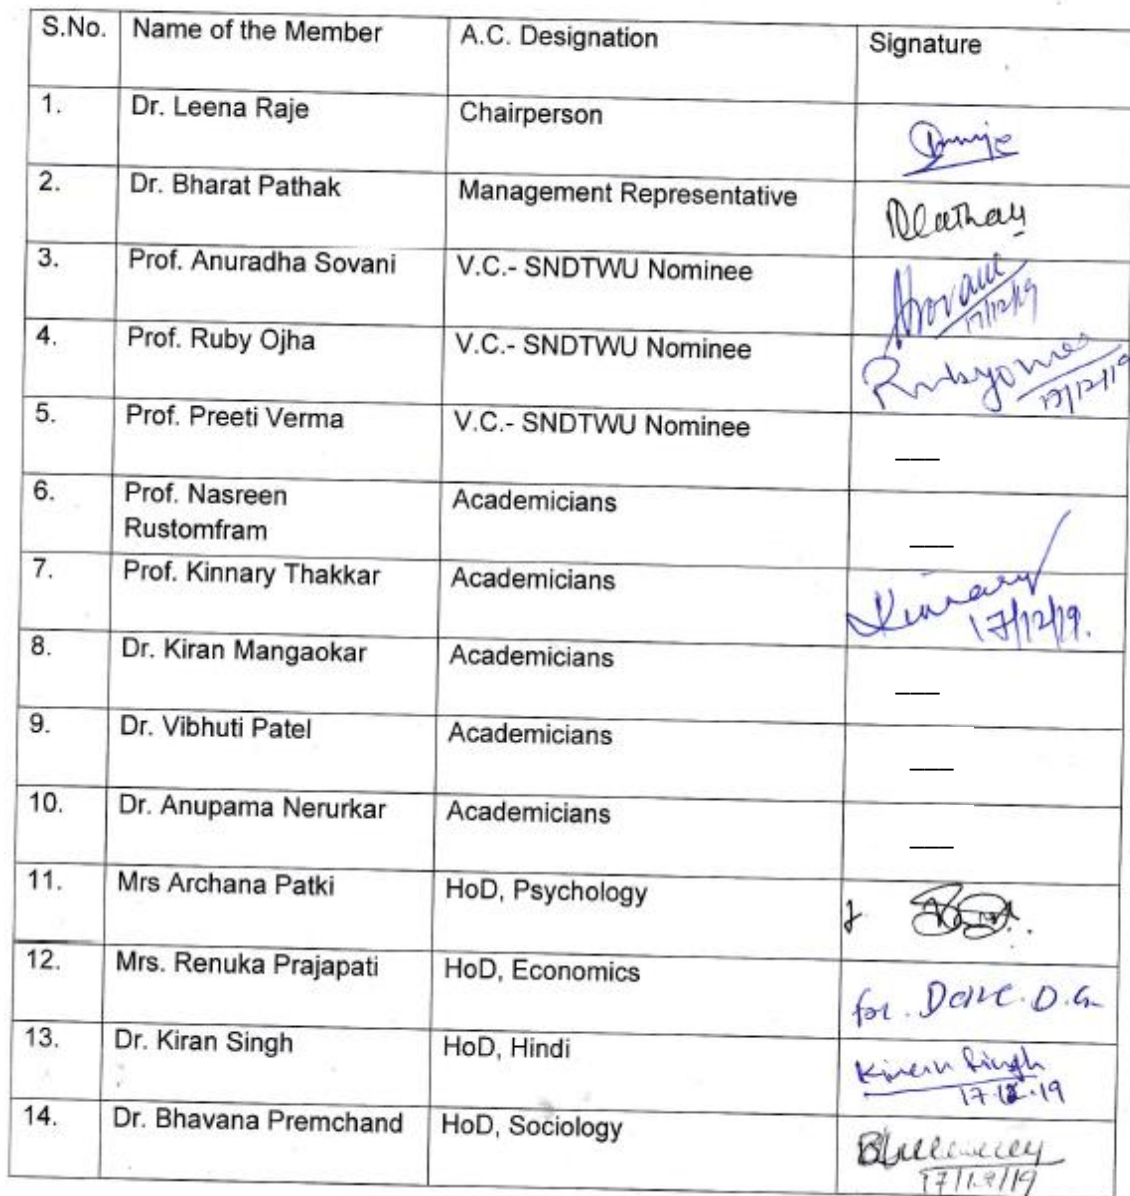 S.No. Name of the Member A.C. Designation Signature
1. Dr. Leena Raje Chairperson
2. Dr. Bharat Pathak Management Representative
3. Prof. Anuradha Sovani V.C.- SNDTWU Nominee
17/12/19
4. Prof. Ruby Ojha V.C.- SNDTWU Nominee
17/12/19
5. Prof. Preeti Verma V.C.- SNDTWU Nominee ___
6. Prof. Nasreen Academicians
Rustomfram ___
7. Prof. Kinnary Thakkar Academicians Kinnary
17/12/19.
8. Dr. Kiran Mangaokar Academicians ___
9. Dr. Vibhuti Patel Academicians ___
10. Dr. Anupama Nerurkar Academicians ___
11. Mrs Archana Patki HoD, Psychology
12. Mrs. Renuka Prajapati HoD, Economics for. D.G.
13. Dr. Kiran Singh HoD, Hindi Kiran Singh
17.12.19
14. Dr. Bhavana Premchand HoD, Sociology
17/12/19